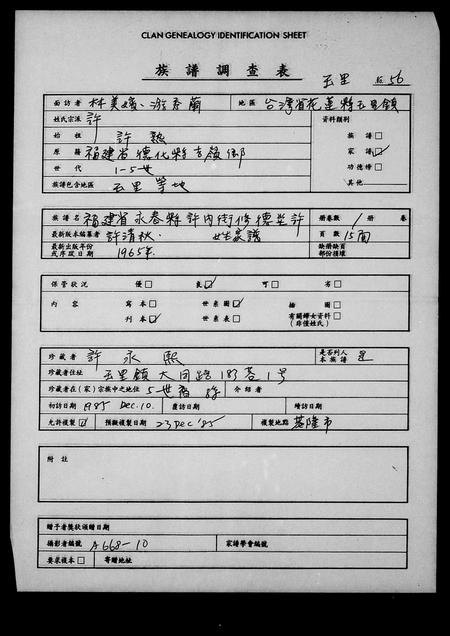 CLAN GENEALOGY IDENTIFICATION SHEET
族譜調查表
玉里 56
面訪者 林美媛、游秀蘭 地區 台灣省花蓮縣玉里鎮
姓氏宗派 許 資料類別
始祖 許熱 族譜□
原籍 福建省德化縣 家譜☑
世代 1-5世 功德榜□
族譜包含地區 玉里等地 其他
族譜名 福建省永春縣許內街修德堂許姓家譜 冊卷數 / 冊 卷
最新版本編纂者 許清秋 頁數 15面
最新出版年份或序跋日期 1965年 缺冊缺頁部份損壞
保管狀况 優□ 良☑ 可□ 劣□
內容 寫本□ 世系圖☑ 插圖□
刊本☑ 世系表□ 有關婦女資料(非僅姓氏)□
珍藏者 許永熙 是否列入本族譜 是
珍藏者住址 玉里鎮大同路183巷1號
珍藏者在(家)宗族中之地位 5世裔孫 介紹者
初訪日期 1985 Dec.10. 覆訪日期 續訪日期
允許複製☑ 預擬複製日期 23 Dec '85 複製地點 基隆市
附註
贈予者獎狀頒贈日期
攝影者編號 A668-10 家譜學會編號
要求複本□ 寄贈地址